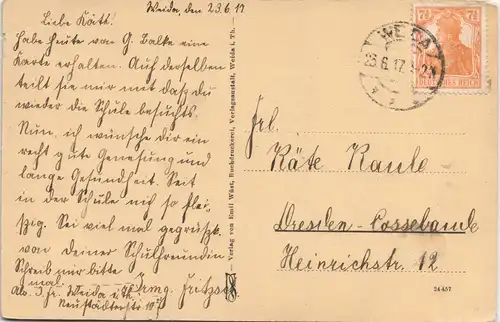 Weida, den 23.6.17
Liebe Kätt!
Habe heute von G. Falke eine
Karte erhalten. Auf derselben
teilt sie mir mit daß du
wieder die Schule besuchst.
Nun, ich wünsche dir ein
recht gute Genesung und
lange Gesundheit. Seit
in der Schule nich so flei-
ßig. Sei viel mal gegrüßt
von deiner Schulfreundin
Schreib mir bitte
mal. Irmg. Fritzsch
Weida i. Th.
Neustädterstr
Verlag von Emil Wüst, Buchdruckerei, Verlagsanstalt, Weida i. Th.
WEIDA
23.6.17
7½ 7½
DEUTSCHES REICH
Frl.
Käte Kaule
Dresden-Cossebaude
Heinrichstr. 12
24457